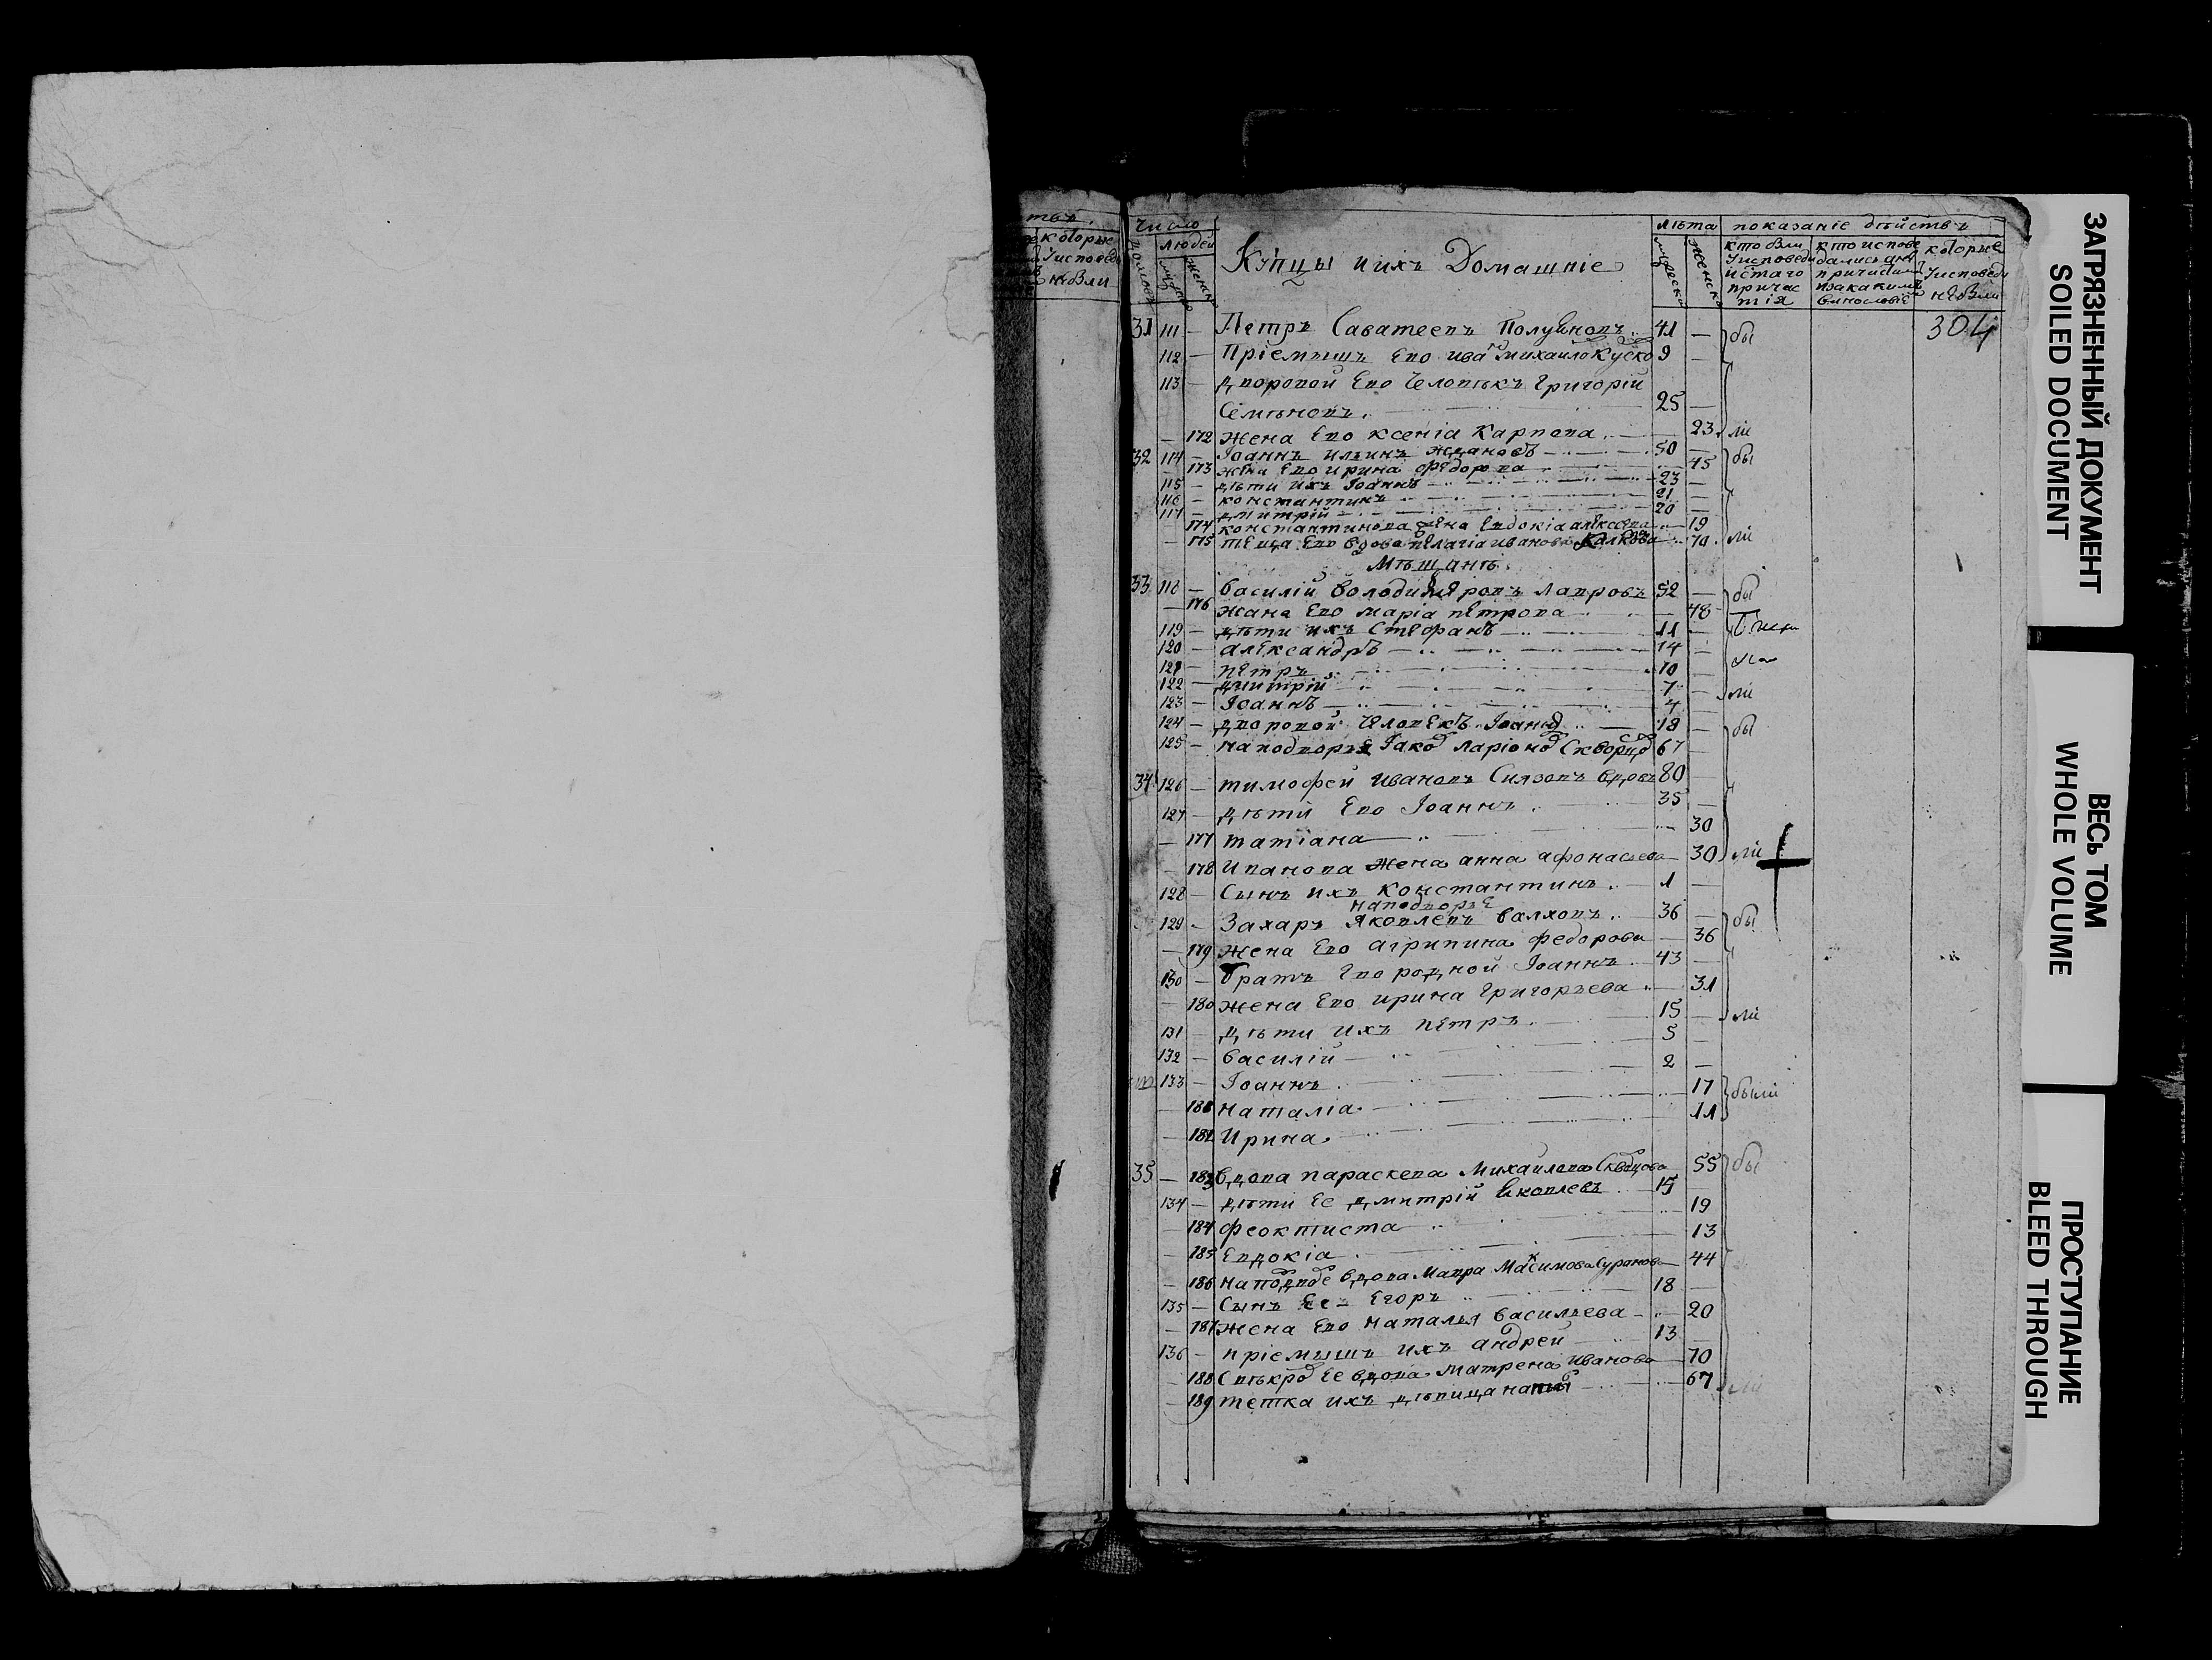 которые
Уисповеди
небыли
число
людей
домовъ
мужеска
женска
Купцы иихъ Домашніе
лѣта
мужеска
женска
показаніе дѣйствъ
кто были Уисповеди истаго причастія
кто исповедались анепричистились закакимъ винословіемъ
которые Уисповеди небыли
304
31 111 — Петръ Саватеевъ 41 — бы
112 — Пріемышъ Его Ива михаило 9 —
113 — дворовой Его Человѣкъ Григорій
Семѣновъ. 25 —
— 172 жена Его ксенія Карпова. — 23 ли
32 114 — Іоаннъ ильинъ Ждановъ 50 — бы
— 173 жена Его ирина федорова — 45
115 — дѣти ихъ Іоаннъ 23 —
116 — константинъ 21 —
117 — дмитрій 20 —
174 константинова жена Евдокіа алексеева — 19
— 175 теща Его вдова пелагіа иванова Калкова — 70 ли
Мѣщанѣ
33 118 — василій володимеровъ лавровъ 52 — бы
— 176 жана Его маріа петрова — 48
119 — дѣти ихъ Стефанъ 11 —
120 — александръ 14 —
121 — петръ 10 —
122 — дмитрій 7 — ли
123 — Іоаннъ 4
124 — дворовой человекъ Іоаннъ 18 — бы
125 — наподворье Іаков ларіонов Скворцов 67 —
34 126 — тимофей ивановъ Сизовъ вдовъ 80 —
127 — дѣти Его Іоаннъ. 35 —
— 177 татіана — 30
— 178 Иванова жена анна афонасьева — 30 ли
128 — Сынъ ихъ константинъ. 1 —
наподворье
129 — Захаръ Яковлевъ валховъ. 36 — бы
— 179 жена Его агрипина федорова — 36
130 — братъ Его родной Іоаннъ 43 —
— 180 жена Его ирина григорьева — 31
131 — дѣти ихъ петръ. 15 — ли
132 — василій 5 —
133 — Іоаннъ 2 —
— 181 наталіа. — 17 были
— 182 Ирина. — 11
35 — 183 вдова параскева Михаилова Скворцова 55 бы
134 — дѣти Ее дмитрій Яковлевъ 15 —
— 184 феоктиста — 19
— 185 Евдокіа — 13
— 186 наподворе вдова Мавра Максимова Суранова — 44
135 — Сынъ Ее Егоръ 18 —
— 187 жена Его наталья васильева — 20
136 — пріемышъ ихъ андрей 13 —
— 188 Свѣкров Ее вдова матрена иванова — 70
— 189 тетка ихъ дѣвица — 67 ли
ЗАГРЯЗНЕННЫЙ ДОКУМЕНТ
SOILED DOCUMENT
ВЕСЬ ТОМ
WHOLE VOLUME
ПРОСТУПАНИЕ
BLEED THROUGH